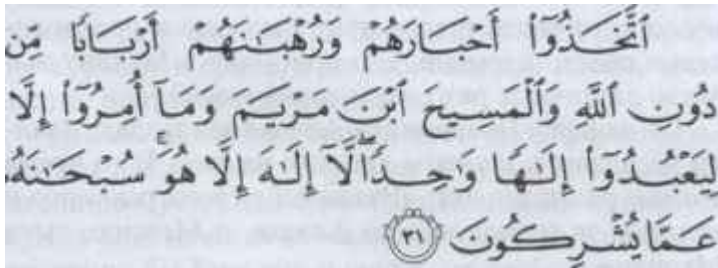 ٱتَّخَذُوٓا۟ أَحْبَارَهُمْ وَرُهْبَـٰنَهُمْ أَرْبَابًا مِّن
دُونِ ٱللَّهِ وَٱلْمَسِيحَ ٱبْنَ مَرْيَمَ وَمَآ أُمِرُوٓا۟ إِلَّا
لِيَعْبُدُوٓا۟ إِلَـٰهًا وَٰحِدًا ۖ لَّآ إِلَـٰهَ إِلَّا هُوَ ۚ سُبْحَـٰنَهُۥ
عَمَّا يُشْرِكُونَ ﴿٣١﴾